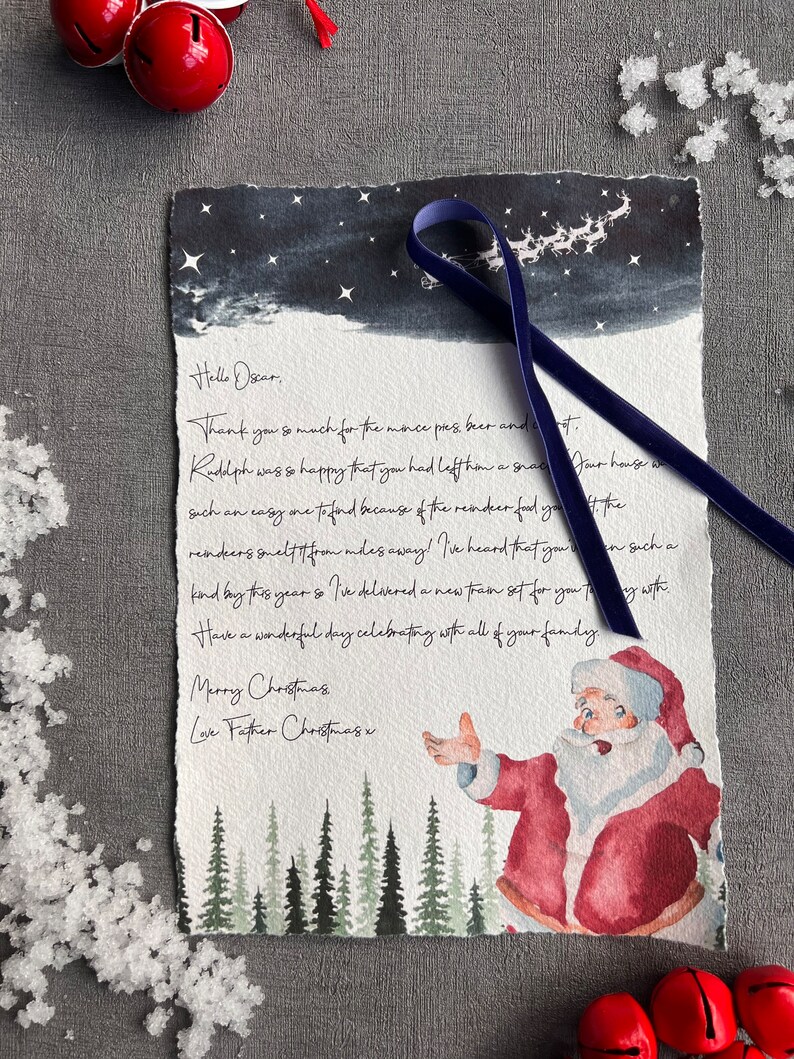 Hello Oscar,
Thank you so much for the mince pies, beer and carrot.
Rudolph was so happy that you had left him a snack! Your house was
such an easy one to find because of the reindeer food you left, the
reindeers smelt it from miles away! I've heard that you've been such a
kind boy this year so I've delivered a new train set for you to play with.
Have a wonderful day celebrating with all of your family.
Merry Christmas,
Love Father Christmas x